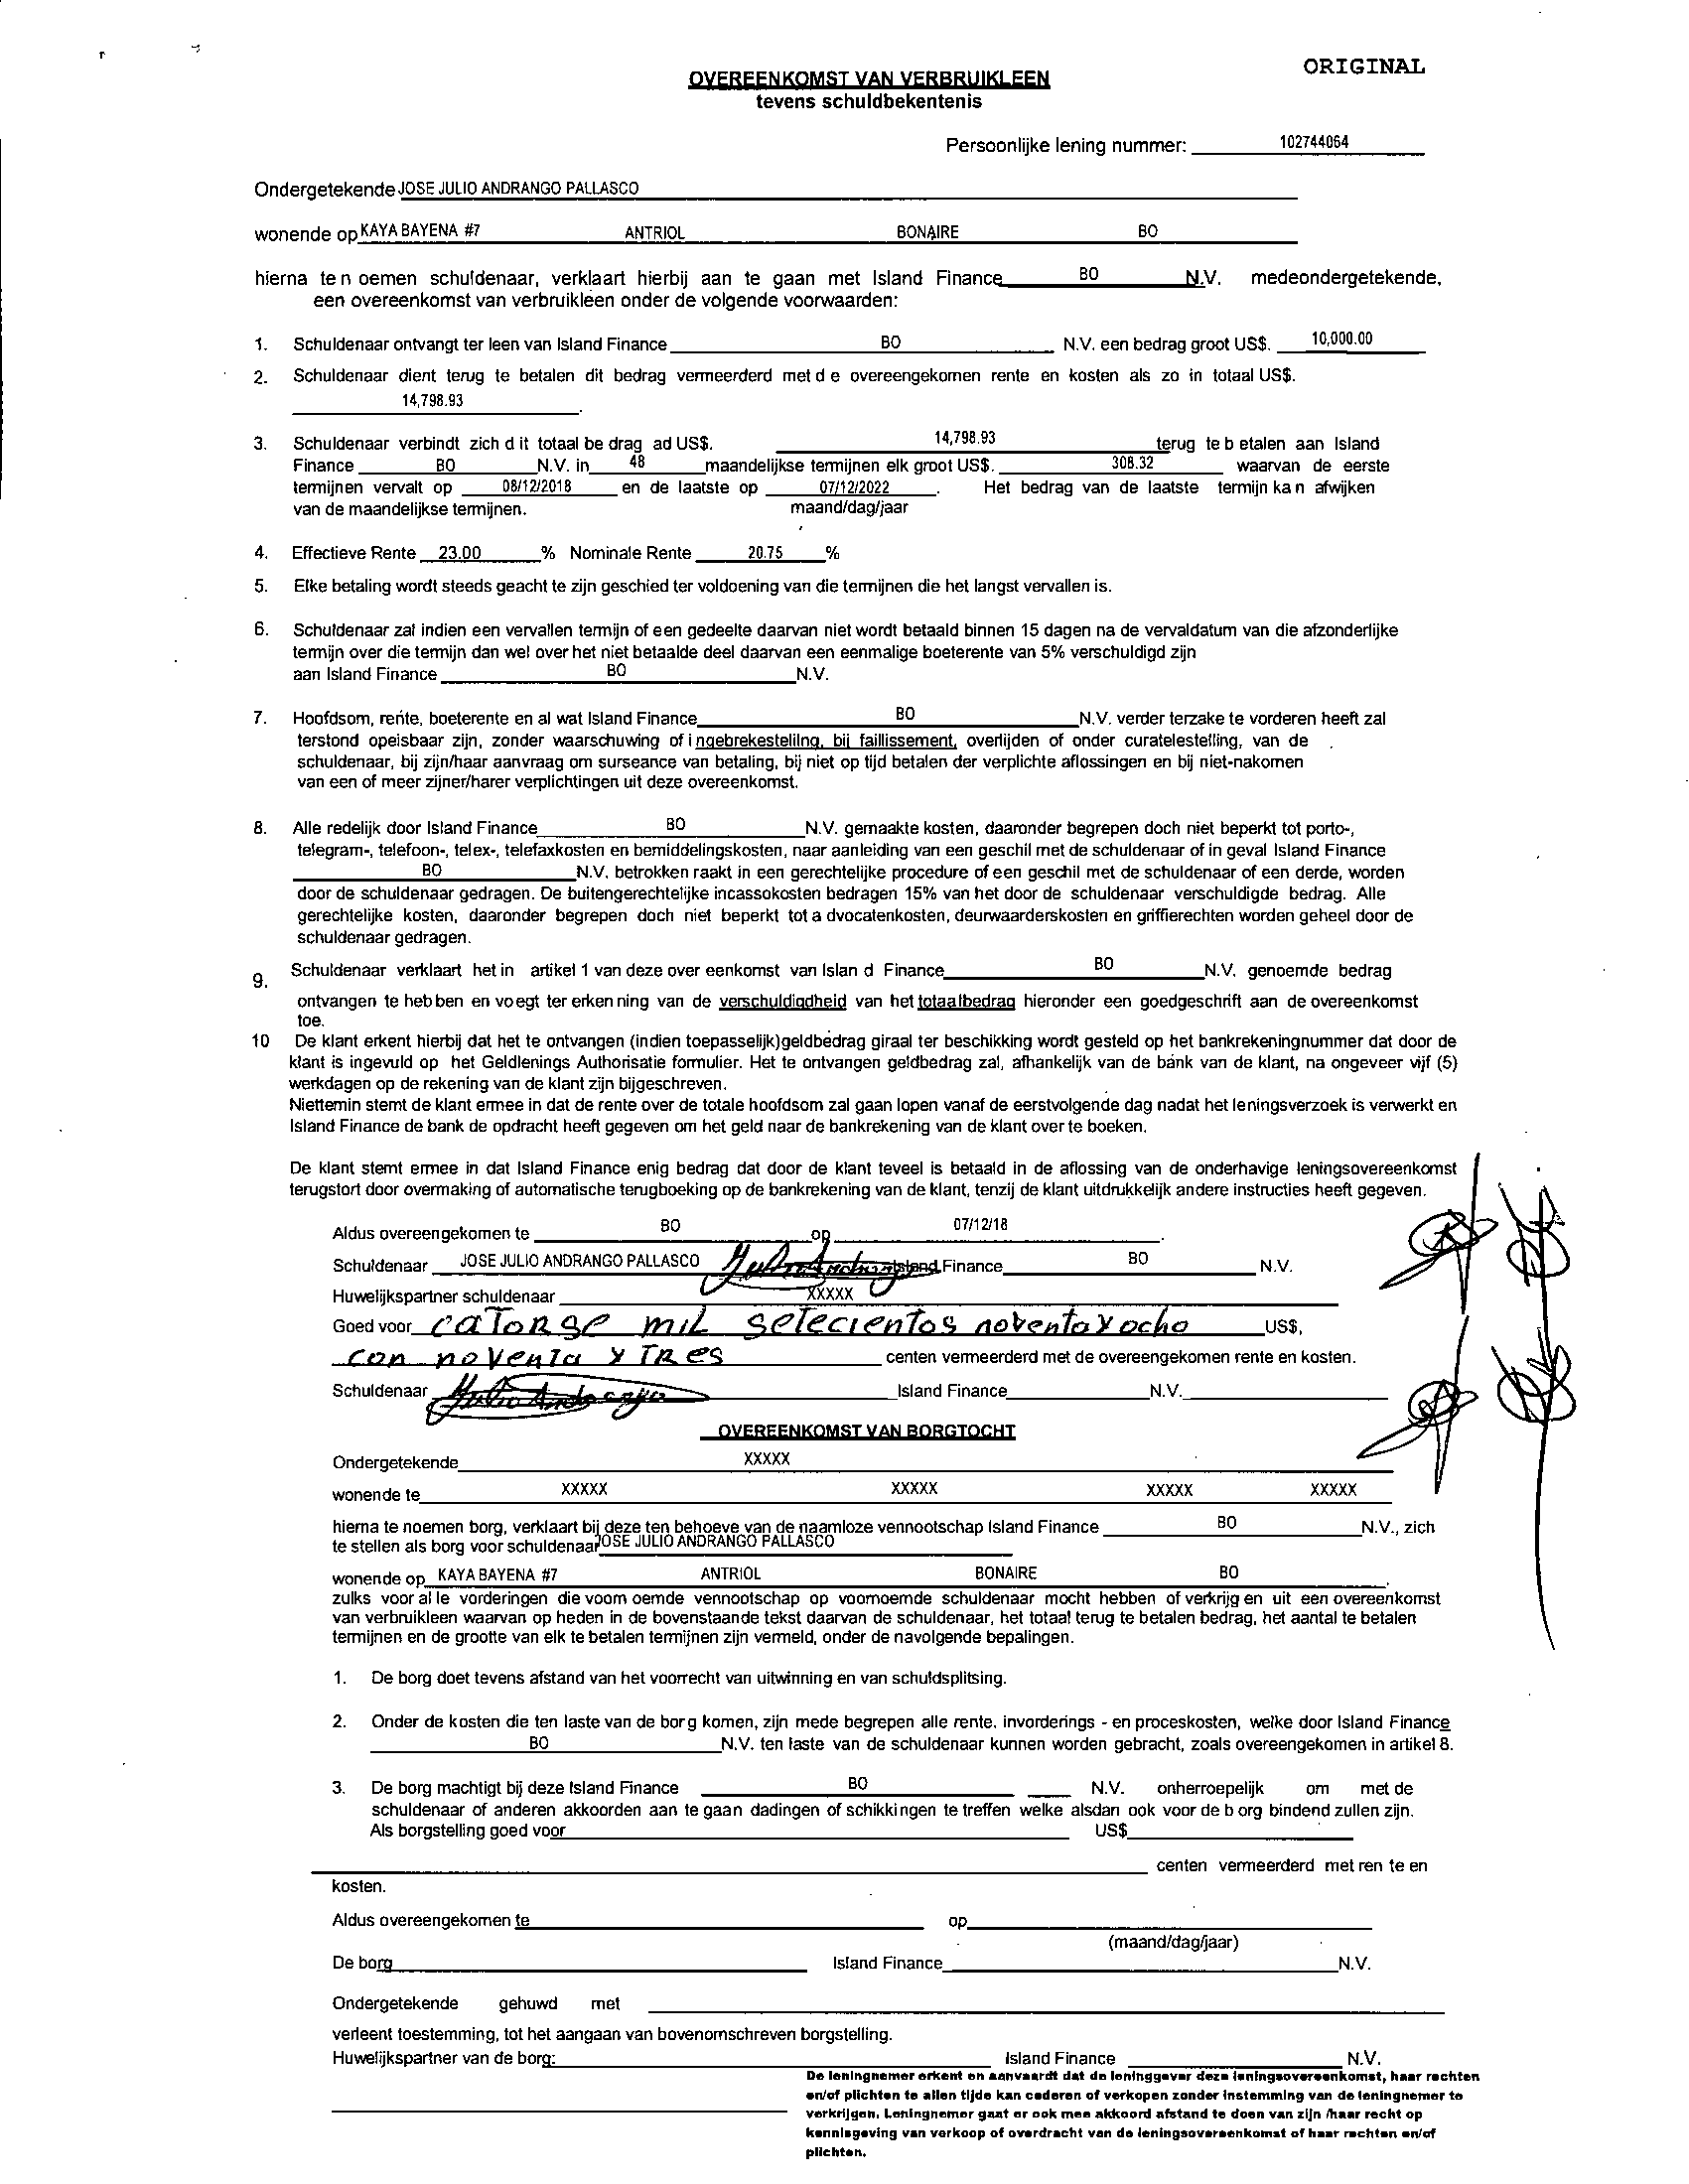 ORIGINAL
OVEREENKOMST VAN VERBRUIKLEEN
tevens schuldbekentenis
Persoonlijke lening nummer: 102744064
Ondergetekende JOSE JULIO ANDRANGO PALLASCO
wonende op KAYA BAYENA #7 ANTRIOL BONAIRE BO
hierna te n oemen schuldenaar, verklaart hierbij aan te gaan met Island Finance BO N.V. medeondergetekende,
een overeenkomst van verbruikleen onder de volgende voorwaarden:
1. Schuldenaar ontvangt ter leen van Island Finance BO N.V. een bedrag groot US$. 10,000.00
2. Schuldenaar dient terug te betalen dit bedrag vermeerderd met d e overeengekomen rente en kosten als zo in totaal US$.
14,798.93.
3. Schuldenaar verbindt zich d it totaal be drag ad US$. 14,798.93 terug te b etalen aan Island
Finance BO N.V. in 48 maandelijkse termijnen elk groot US$. 308.32 waarvan de eerste
termijnen vervalt op 08/12/2018 en de laatste op 07/12/2022. Het bedrag van de laatste termijn ka n afwijken
van de maandelijkse termijnen. maand/dag/jaar
4. Effectieve Rente 23.00 % Nominale Rente 20.75 %
5. Elke betaling wordt steeds geacht te zijn geschied ter voldoening van die termijnen die het langst vervallen is.
6. Schuldenaar zal indien een vervallen termijn of een gedeelte daarvan niet wordt betaald binnen 15 dagen na de vervaldatum van die afzonderlijke
termijn over die termijn dan wel over het niet betaalde deel daarvan een eenmalige boeterente van 5% verschuldigd zijn
aan Island Finance BO N.V.
7. Hoofdsom, rente, boeterente en al wat Island Finance BO N.V. verder terzake te vorderen heeft zal
terstond opeisbaar zijn, zonder waarschuwing of i ngebrekestelilng, bij faillissement, overlijden of onder curatelestelling, van de
schuldenaar, bij zijn/haar aanvraag om surseance van betaling, bij niet op tijd betalen der verplichte aflossingen en bij niet-nakomen
van een of meer zijner/harer verplichtingen uit deze overeenkomst.
8. Alle redelijk door Island Finance BO N.V. gemaakte kosten, daaronder begrepen doch niet beperkt tot porto-,
telegram-, telefoon-, telex-, telefaxkosten en bemiddelingskosten, naar aanleiding van een geschil met de schuldenaar of in geval Island Finance
BO N.V. betrokken raakt in een gerechtelijke procedure of een geschil met de schuldenaar of een derde, worden
door de schuldenaar gedragen. De buitengerechtelijke incassokosten bedragen 15% van het door de schuldenaar verschuldigde bedrag. Alle
gerechtelijke kosten, daaronder begrepen doch niet beperkt tot a dvocatenkosten, deurwaarderskosten en griffierechten worden geheel door de
schuldenaar gedragen.
9. Schuldenaar verklaart het in artikel 1 van deze over eenkomst van Islan d Finance BO N.V. genoemde bedrag
ontvangen te heb ben en vo egt ter erken ning van de verschuldigdheid van het totaalbedrag hieronder een goedgeschrift aan de overeenkomst
toe.
10 De klant erkent hierbij dat het te ontvangen (indien toepasselijk)geldbedrag giraal ter beschikking wordt gesteld op het bankrekeningnummer dat door de
klant is ingevuld op het Geldlenings Authorisatie formulier. Het te ontvangen geldbedrag zal, afhankelijk van de bank van de klant, na ongeveer vijf (5)
werkdagen op de rekening van de klant zijn bijgeschreven.
Niettemin stemt de klant ermee in dat de rente over de totale hoofdsom zal gaan lopen vanaf de eerstvolgende dag nadat het leningsverzoek is verwerkt en
Island Finance de bank de opdracht heeft gegeven om het geld naar de bankrekening van de klant over te boeken.
De klant stemt ermee in dat Island Finance enig bedrag dat door de klant teveel is betaald in de aflossing van de onderhavige leningsovereenkomst
terugstort door overmaking of automatische terugboeking op de bankrekening van de klant, tenzij de klant uitdrukkelijk andere instructies heeft gegeven.
Aldus overeengekomen te BO op 07/12/18.
Schuldenaar JOSE JULIO ANDRANGO PALLASCO Island Finance BO N.V.
Huwelijkspartner schuldenaar XXXXX
Goed voor catorse mil setecientos noventa y ocho US$,
con noventa y tres centen vermeerderd met de overeengekomen rente en kosten.
Schuldenaar Julio Andrango Island Finance N.V.
OVEREENKOMST VAN BORGTOCHT
Ondergetekende XXXXX
wonende te XXXXX XXXXX XXXXX XXXXX
hierna te noemen borg, verklaart bij deze ten behoeve van de naamloze vennootschap Island Finance BO N.V., zich
te stellen als borg voor schuldenaar JOSE JULIO ANDRANGO PALLASCO
wonende op KAYA BAYENA #7 ANTRIOL BONAIRE BO,
zulks voor al le vorderingen die voorn oemde vennootschap op voornoemde schuldenaar mocht hebben of verkrijg en uit een overeenkomst
van verbruikleen waarvan op heden in de bovenstaande tekst daarvan de schuldenaar, het totaal terug te betalen bedrag, het aantal te betalen
termijnen en de grootte van elk te betalen termijnen zijn vermeld, onder de navolgende bepalingen.
1. De borg doet tevens afstand van het voorrecht van uitwinning en van schuldsplitsing.
2. Onder de kosten die ten laste van de borg komen, zijn mede begrepen alle rente, invorderings - en proceskosten, welke door Island Finance
BO N.V. ten laste van de schuldenaar kunnen worden gebracht, zoals overeengekomen in artikel 8.
3. De borg machtigt bij deze Island Finance BO N.V. onherroepelijk om met de
schuldenaar of anderen akkoorden aan te gaan dadingen of schikkingen te treffen welke alsdan ook voor de b org bindend zullen zijn.
Als borgstelling goed voor US$
centen vermeerderd met ren te en
kosten.
Aldus overeengekomen te op
(maand/dag/jaar)
De borg Island Finance N.V.
Ondergetekende gehuwd met
verleent toestemming, tot het aangaan van bovenomschreven borgstelling.
Huwelijkspartner van de borg: Island Finance N.V.
De leningnemer erkent en aanvaardt dat de leninggever deze leningsovereenkomst, haar rechten
en/of plichten te allen tijde kan cederen of verkopen zonder instemming van de leningnemer te
verkrijgen. Leningnemer gaat er ook mee akkoord afstand te doen van zijn /haar recht op
kennisgeving van verkoop of overdracht van de leningsovereenkomst of haar rechten en/of
plichten.